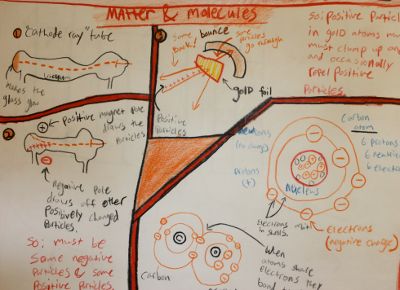 Matter & molecules
"Cathode ray" tube
vacuum
makes the
glass glow
Some
bounce
back!
some
particles
go through
gold foil
Positive
Particles
So: positive particles
in gold atoms
must clump up
and occasionally
repel Positive
Particles.
Positive magnet pole
draws the
Particles
Negative Pole
draws off other
Positively charged
Particles.
So; must be
some negative
Particles & some
Positive Particles.
neutrons
Protons
(+)
Carbon
atom
6 protons
6
6
Nucleus
Electrons
in shells.
orbit
Electrons
(negative charge)
Carbon
When
atoms share
Electrons they
bond